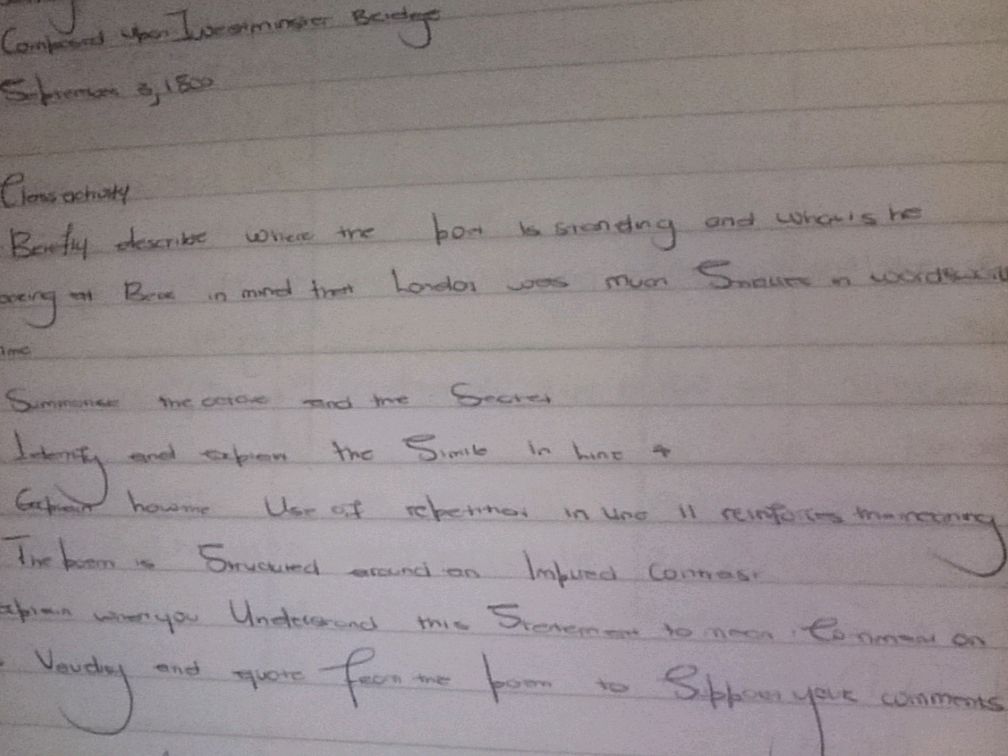 Composed upon Westminster Bridge
September 3, 1800
Class activity
Briefly describe where the poet is standing and what is he
at Bear in mind that London was much Smaller in wordsworth
ime
Summarise the octave and the Sestet
Identify and explain the Simile in Line 4
Explain how the Use of repetition in line 11 reinforces the meaning
The poem is Structured around an Implied Contrast
explain what you Understand this Statement to mean Comment on
and quote from the poem to Support your comments